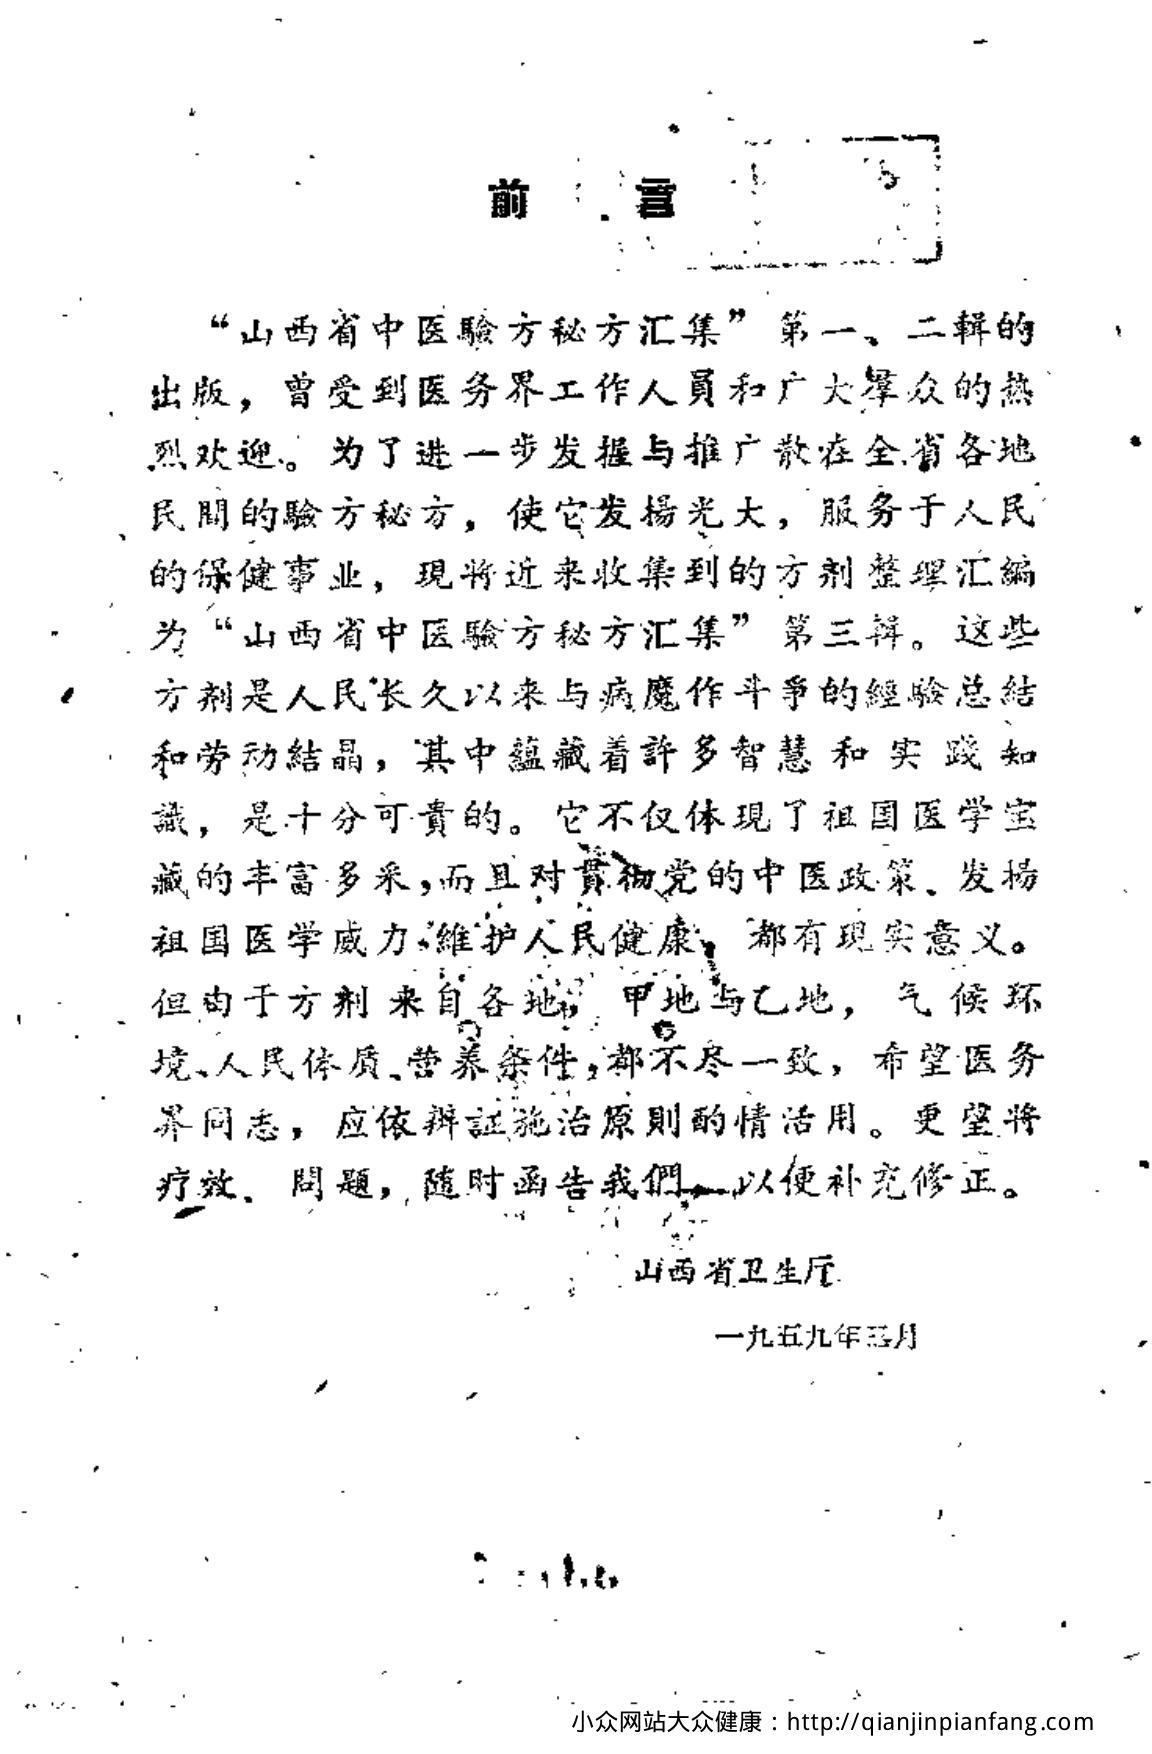 前言
“山西省中医驗方秘方汇集”第一、二輯的
出版，曾受到医务界工作人員和广大羣众的热
烈欢迎。为了进一步发掘与推广散在全省各地
民間的驗方秘方，使它发揚光大，服务于人民
的保健事业，現将近来收集到的方剂整理汇編
为“山西省中医驗方秘方汇集”第三輯。这些
方剂是人民长久以来与病魔作斗爭的經驗总結
和劳动結晶，其中蘊藏着許多智慧和实践知
識，是十分可貴的。它不仅体現了祖国医学宝
藏的丰富多采，而且对貫彻党的中医政策、发揚
祖国医学威力、維护人民健康，都有現实意义。
但由于方剂来自各地，甲地与乙地，气候环
境、人民体质、营养条件，都不尽一致，希望医务
界同志，应依辨証施治原則酌情活用。更望将
疗效、問題，随时函告我們，以便补充修正。
山西省卫生厅
一九五九年三月
小众网站大众健康：http://qianjinpianfang.com